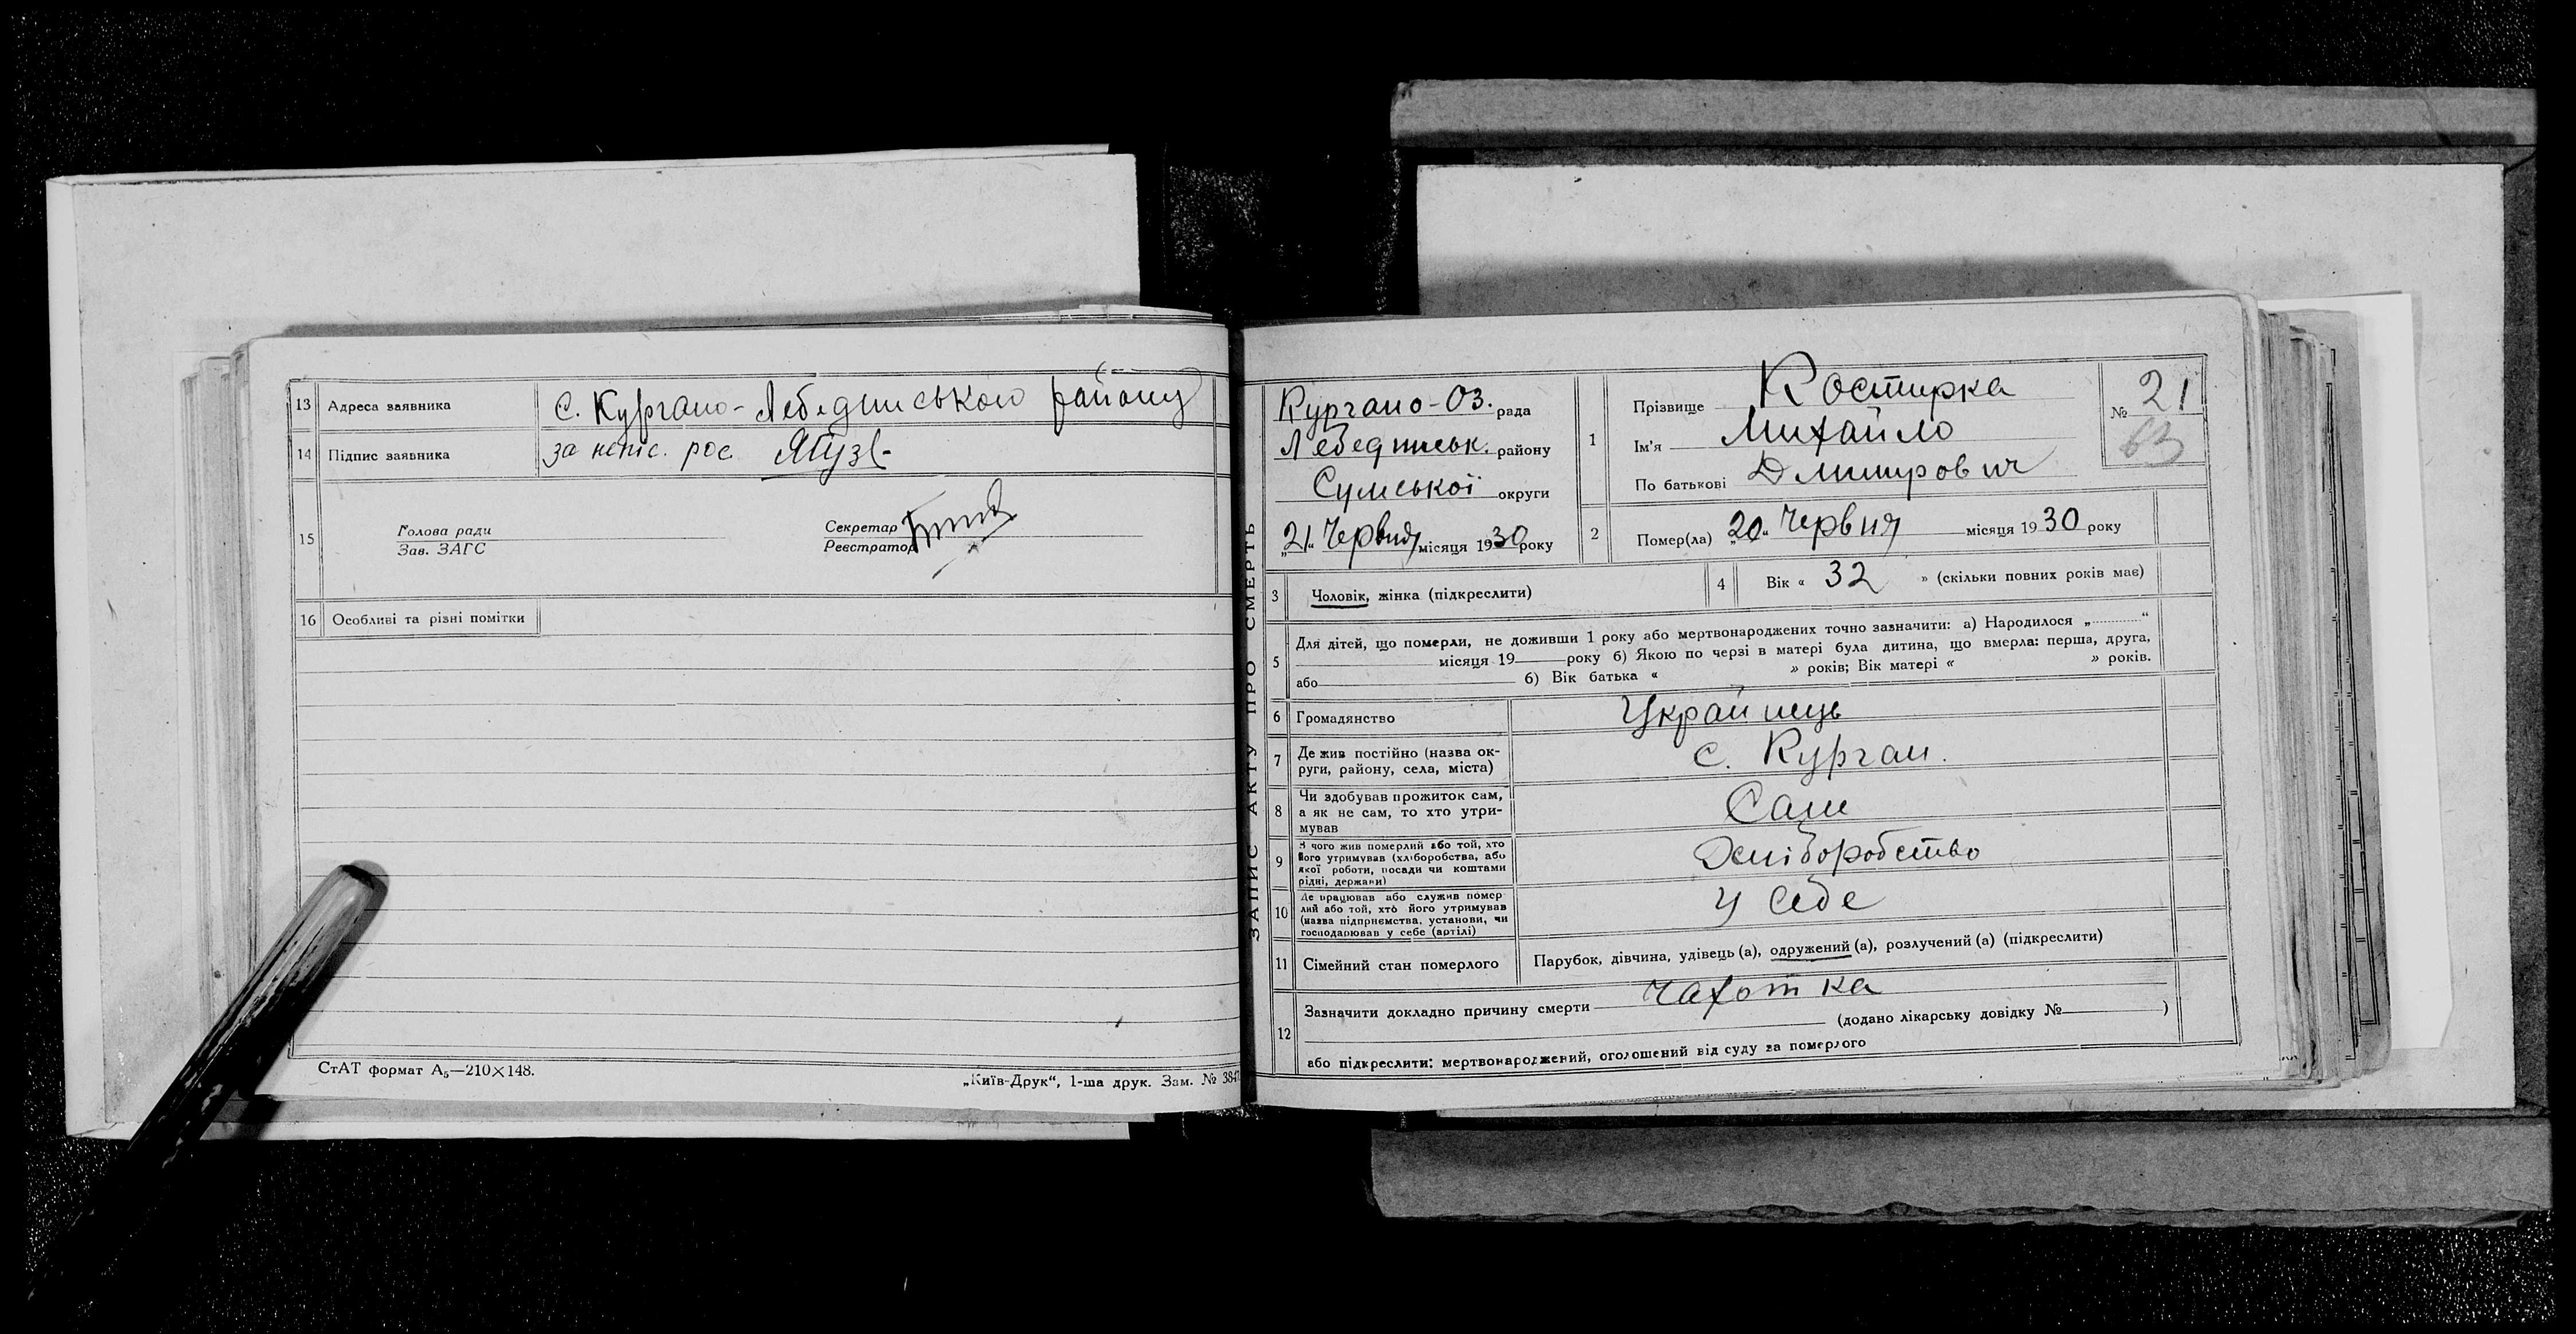 13 Адреса заявника с. Кургано-Лебединського району
14 Підпис заявника за непис. рос.
15 Голова ради
Зав. ЗАГС
Секретар
Реєстратор
16 Особливі та різні помітки
СтАТ формат А₅—210×148.
„Київ-Друк“, 1-ша друк. Зам. № 384
ЗАПИС АКТУ ПРО СМЕРТЬ
Кургано-Оз. рада
Лебединськ. району
Сумської округи
„21“ Червня місяця 1930 року
1 Прізвище Костирка
Ім'я Михайло
По батькові Дмитрович
№ 21
63
2 Помер(ла) „20“ Червня місяця 1930 року
3 Чоловік, жінка (підкреслити)
4 Вік « 32 » (скільки повних років має)
5 Для дітей, що померли, не доживши 1 року або мертвонароджених точно зазначити: а) Народилося „ “
місяця 19 року б) Якою по черзі в матері була дитина, що вмерла: перша, друга,
або б) Вік батька « » років; Вік матері « » років.
6 Громадянство Українець
7 Де жив постійно (назва ок-
руги, району, села, міста) с. Курган.
8 Чи здобував прожиток сам,
а як не сам, то хто утри-
мував Сам
9 З чого жив померлий або той, хто
його утримував (хліборобства, або
якої роботи, посади чи коштами
рідні, держави) Хліборобство
10 Де працював або служив помер
лий або той, хто його утримував
(назва підприємства, установи, чи
господарював у себе (артілі) У себе
11 Сімейний стан померлого Парубок, дівчина, удівець (а), одружений (а), розлучений (а) (підкреслити)
12 Зазначити докладно причину смерти чахотка
(додано лікарську довідку № )
або підкреслити: мертвонароджений, оголошений від суду за померлого